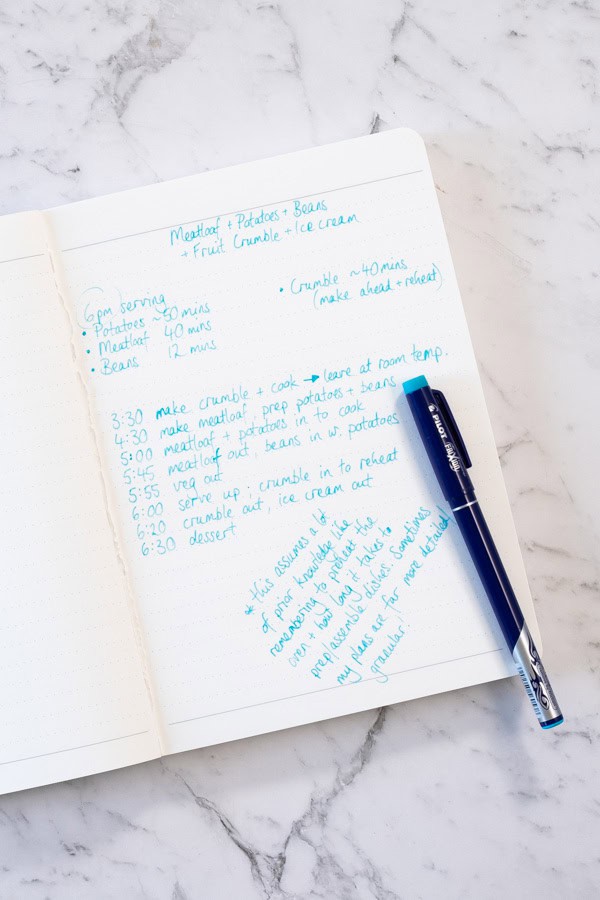 Meatloaf + Potatoes + Beans
+ Fruit Crumble + Ice cream
6pm serving
• Potatoes ~50 mins
• Meatloaf 40 mins
• Beans 12 mins
• Crumble ~40mins
(make ahead + reheat)
3:30 make crumble + cook → leave at room temp.
4:30 make meatloaf, prep potatoes + beans
5:00 meatloaf + potatoes in to cook
5:45 meatloaf out, beans in w. potatoes
5:55 veg out
6:00 serve up, crumble in to reheat
6:20 crumble out, ice cream out
6:30 dessert
* this assumes a lot
of prior knowledge like
remembering to preheat the
oven + how long it takes to
prep/assemble dishes. Sometimes
my plans are far more detailed/
granular!
PILOT FRIXION